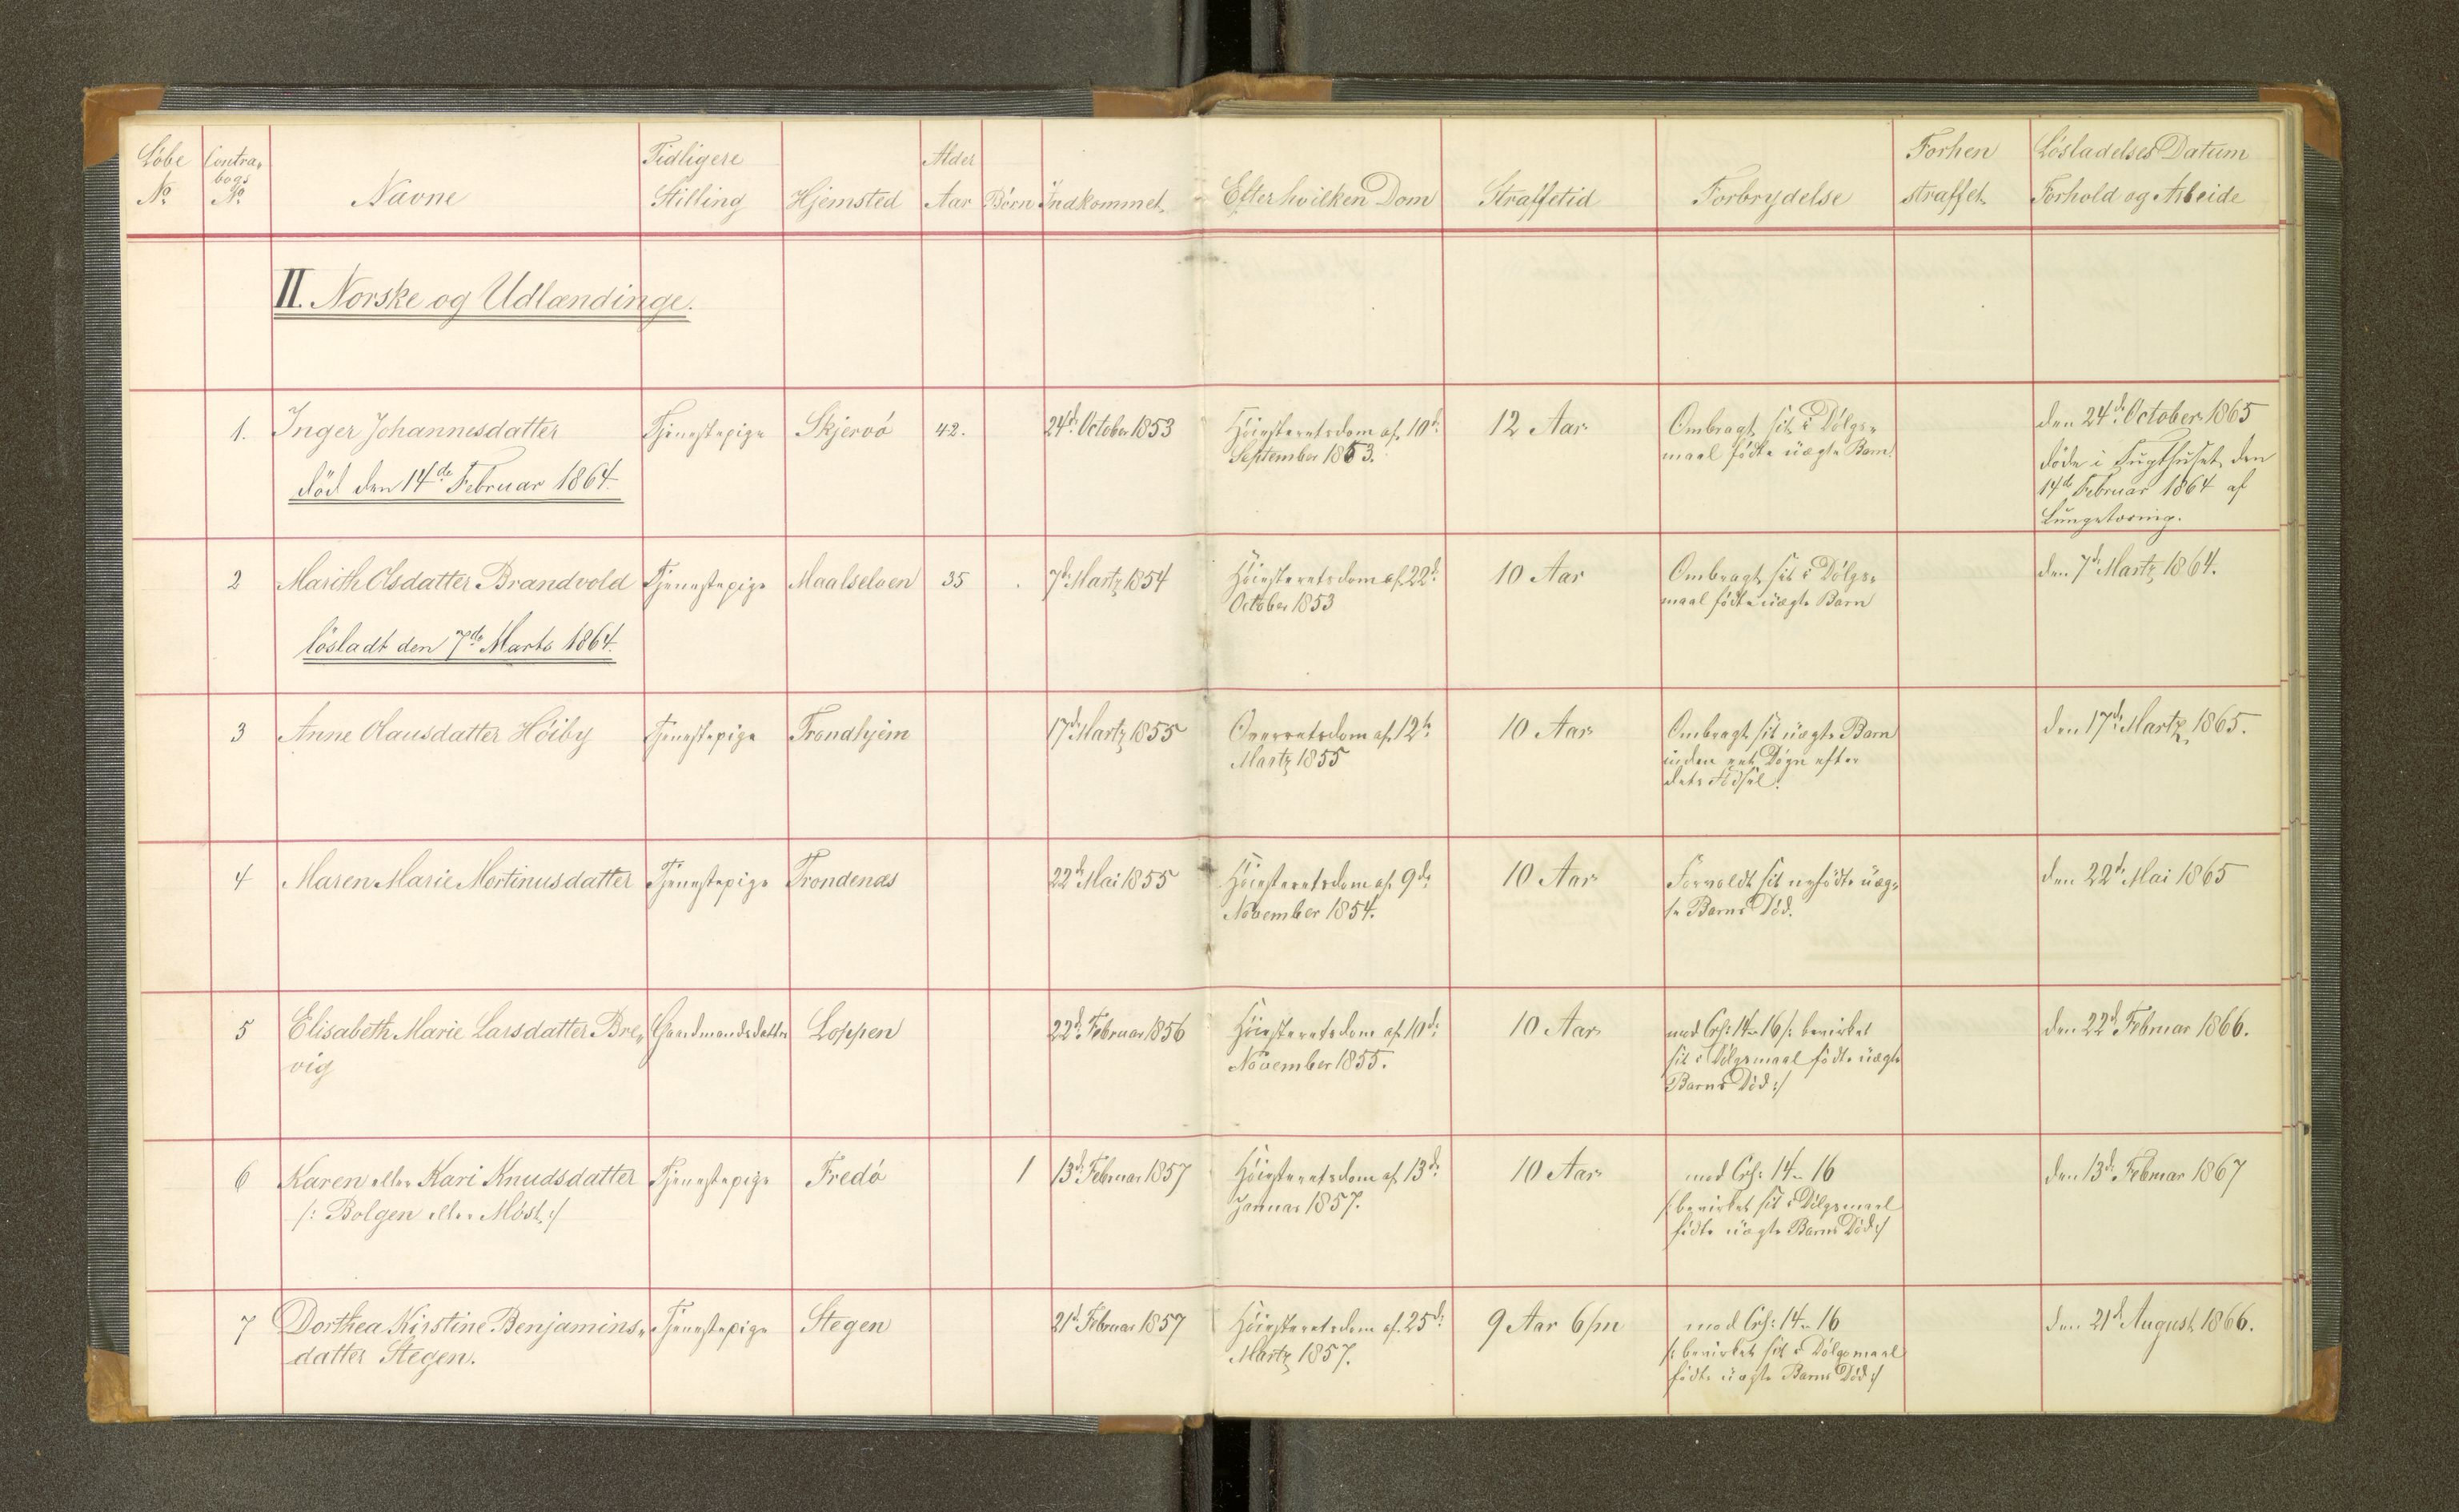 Löbe Contra- Tidligere Alder Forhen Lösladelses Datum
No bogs No Navne Stilling Hjemsted Aar Börn Indkommet. Efter hvilken Dom Straffetid Forbrydelse straffet. Forhold og Arbeide
II. Norske og Udlændinge.
1. Inger Johannesdatter Tjenestepige Skjervö 42. 24de October 1853 Höiesteretsdom af 10de 12 Aar Ombragt sit i Dölgs- den 24de October 1865
död den 14de Februar 1864. September 1853. maal födte uægte Barn. döde i Tugthuset den
14de Februar 1864 af
Lungetæring.
2 Marith Olsdatter Brandvold Tjenestepige Maalselven 35 7de Martz 1854 Höiesteretsdom af 22de 10 Aar Ombragt sit i Dölgs- den 7de Martz 1864.
lösladt den 7de Marts 1864. October 1853 maal födte uægte Barn
3 Anne Olausdatter Höiby Tjenestepige Trondhjem 17de Martz 1855 Overretsdom af 12te 10 Aar Ombragt sit uægte Barn den 17de Martz 1865.
Martz 1855 inden eet Dögn efter
dets Födsel.
4 Maren Marie Mortinusdatter Tjenestepige Trondenæs 22de Mai 1855 Höiesteretsdom af 9de 10 Aar Forvoldt sit nyfödte uæg- den 22de Mai 1865
November 1854. te Barns Död.
5 Elisabeth Marie Larsdatter Bre- Gaardmandsdatter Loppen 22de Februar 1856 Höiesteretsdom af 10de 10 Aar mod Crl: 14-16 /: bevirket den 22de Februar 1866.
vig November 1855. sit i Dölgsmaal födte uægte
Barns Död :/
6 Karen eller Kari Knudsdatter Tjenestepige Fredö 1 13de Februar 1857 Höiesteretsdom af 13de 10 Aar mod Crl: 14-16 den 13de Februar 1867
/: Bolgen eller Möst :/ Januar 1857. /: bevirket sit i Dölgsmaal
födte uægte Barns Död :/
7 Dorthea Kirstine Benjamins- Tjenestepige Stegen 21de Februar 1857 Höiesteretsdom af 25de 9 Aar 6/m mod Crl: 14-16 den 21de August 1866.
datter Stegen. Martz 1857. /: bevirket sit i Dölgsmaal
födte uægte Barns Död :/